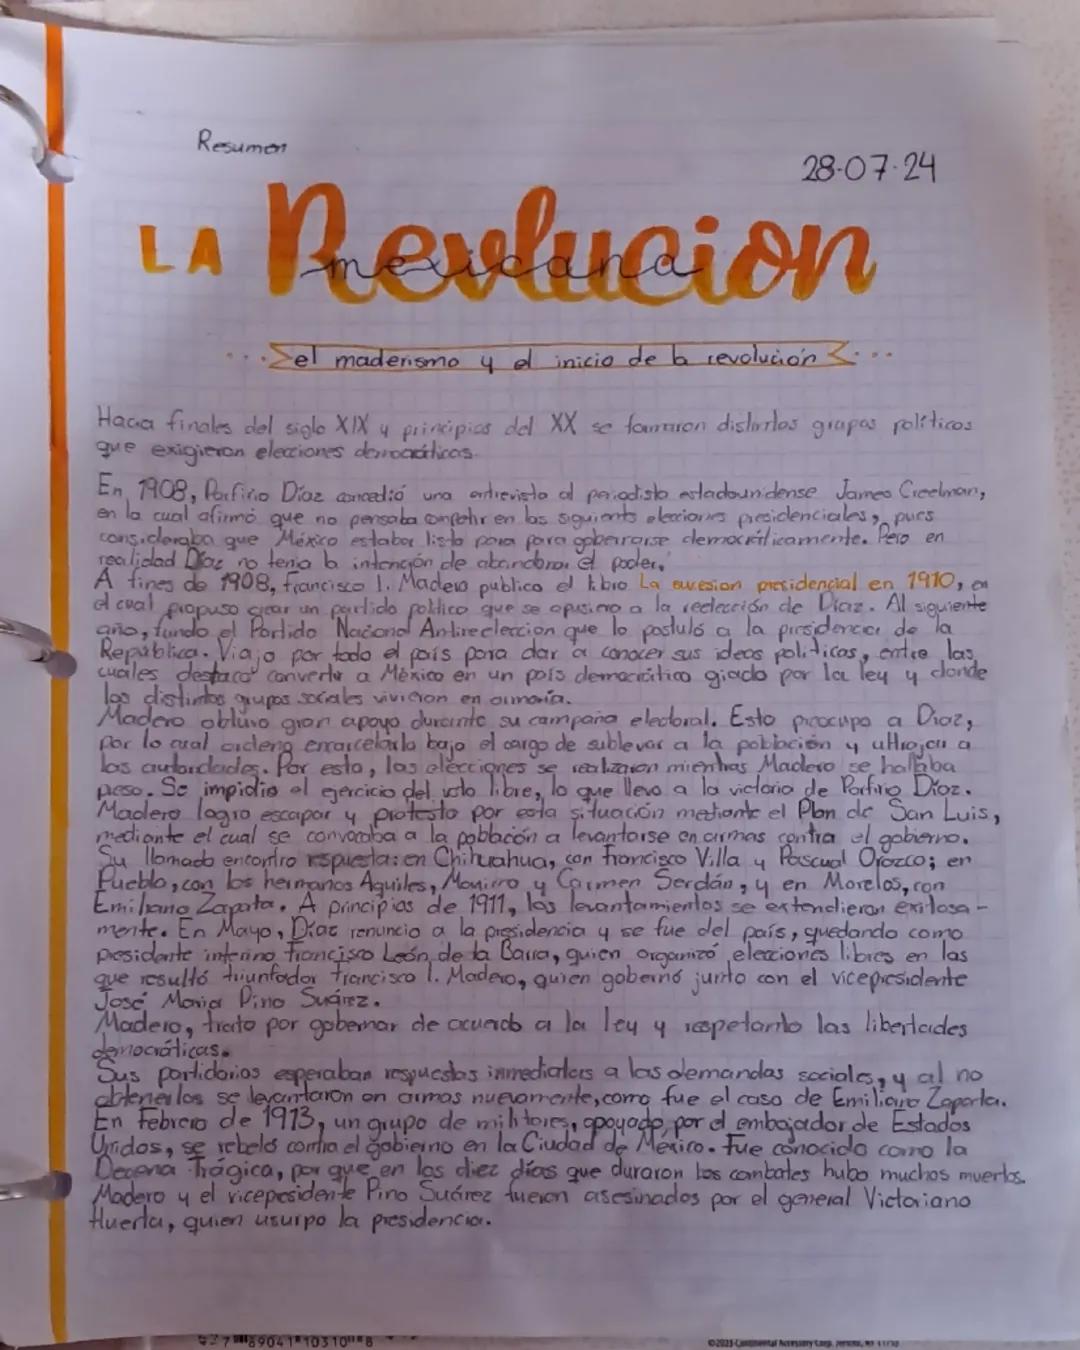 Resumen
28-07-24
LA Revlucion
mexicana
el maderismo y el inicio de la revolución
Hacia finales del siglo XIX y principios del XX se formaron distintos grupos políticos
que exigieron elecciones democráticas.
En 1908, Porfirio Díaz concedió una entrevista al periodista estadounidense James Creelman,
en la cual afirmó que no pensaba competir en las siguients elecciones presidenciales, pues
consideraba que México estaba listo para para gobernarse democráticamente. Pero en
realidad Díaz no tenia la intención de abandonar el poder.
A fines de 1908, francisco I. Madero publico el libro La sucesion presidencial en 1910, en
el cual propuso crear un partido politico que se opusiera a la reelección de Díaz. Al siguiente
año, fundo el Partido Nacional Antireeleccion que lo postuló a la presidencia de la
República. Viajo por todo el país para dar a conocer sus ideas politicas, entre las
cuales destaca convertir a México en un país democrático giado por la ley y donde
los distintos grupos sociales vivieron en armonía.
Madero obtuvo gran apoyo durante su campaña electoral. Esto preocupo a Diaz,
por lo cual ordeno encarcelarlo bajo el cargo de sublevar a la población y ultrajar a
las autoridades. Por esto, las elecciones se realizaron mientras Madero se hallaba
preso. Se impidio el ejercicio del voto libre, lo que llevo a la victoria de Porfirio Díaz.
Madero logro escapar y protesto por esta situación mediante el Plan de San Luis,
mediante el cual se convocaba a la población a levantarse en armas contra el gobierno.
Su llamado encontro respuesta: en Chihuahua, con Francisco Villa y Pascual Orozco; en
Puebla, con los hermanos Aquiles, Maximo y Carmen Serdán, y en Morelos, con
Emiliano Zapata. A principios de 1911, los levantamientos se extendieron exitosa-
mente. En Mayo, Díaz renuncio a la presidencia y se fue del país, quedando como
presidente interino francisco León de la Barra, quien organizó elecciones libres en las
que resultó triunfador francisco I. Madero, quien gobernó junto con el vicepresidente
José Maria Pino Suárez.
Madero, trato por gobernar de acuerdo a la ley y respetando las libertades
democráticas.
Sus partidarios esperaban respuestas inmediatas a las demandas sociales, y al no
obtenerlas se levantaron en armas nuevamente, como fue el caso de Emiliano Zapata.
En Febrero de 1913, un grupo de militares, apoyado por el embajador de Estados
Unidos, se rebeló contra el gobierno en la Ciudad de México. Fue conocido como la
Decena Trágica, por que en los diez días que duraron los combates hubo muchos muertos.
Madero y el vicepesidente Pino Suárez fueron asesinados por el general Victoriano
Huerta, quien usurpo la presidencia.